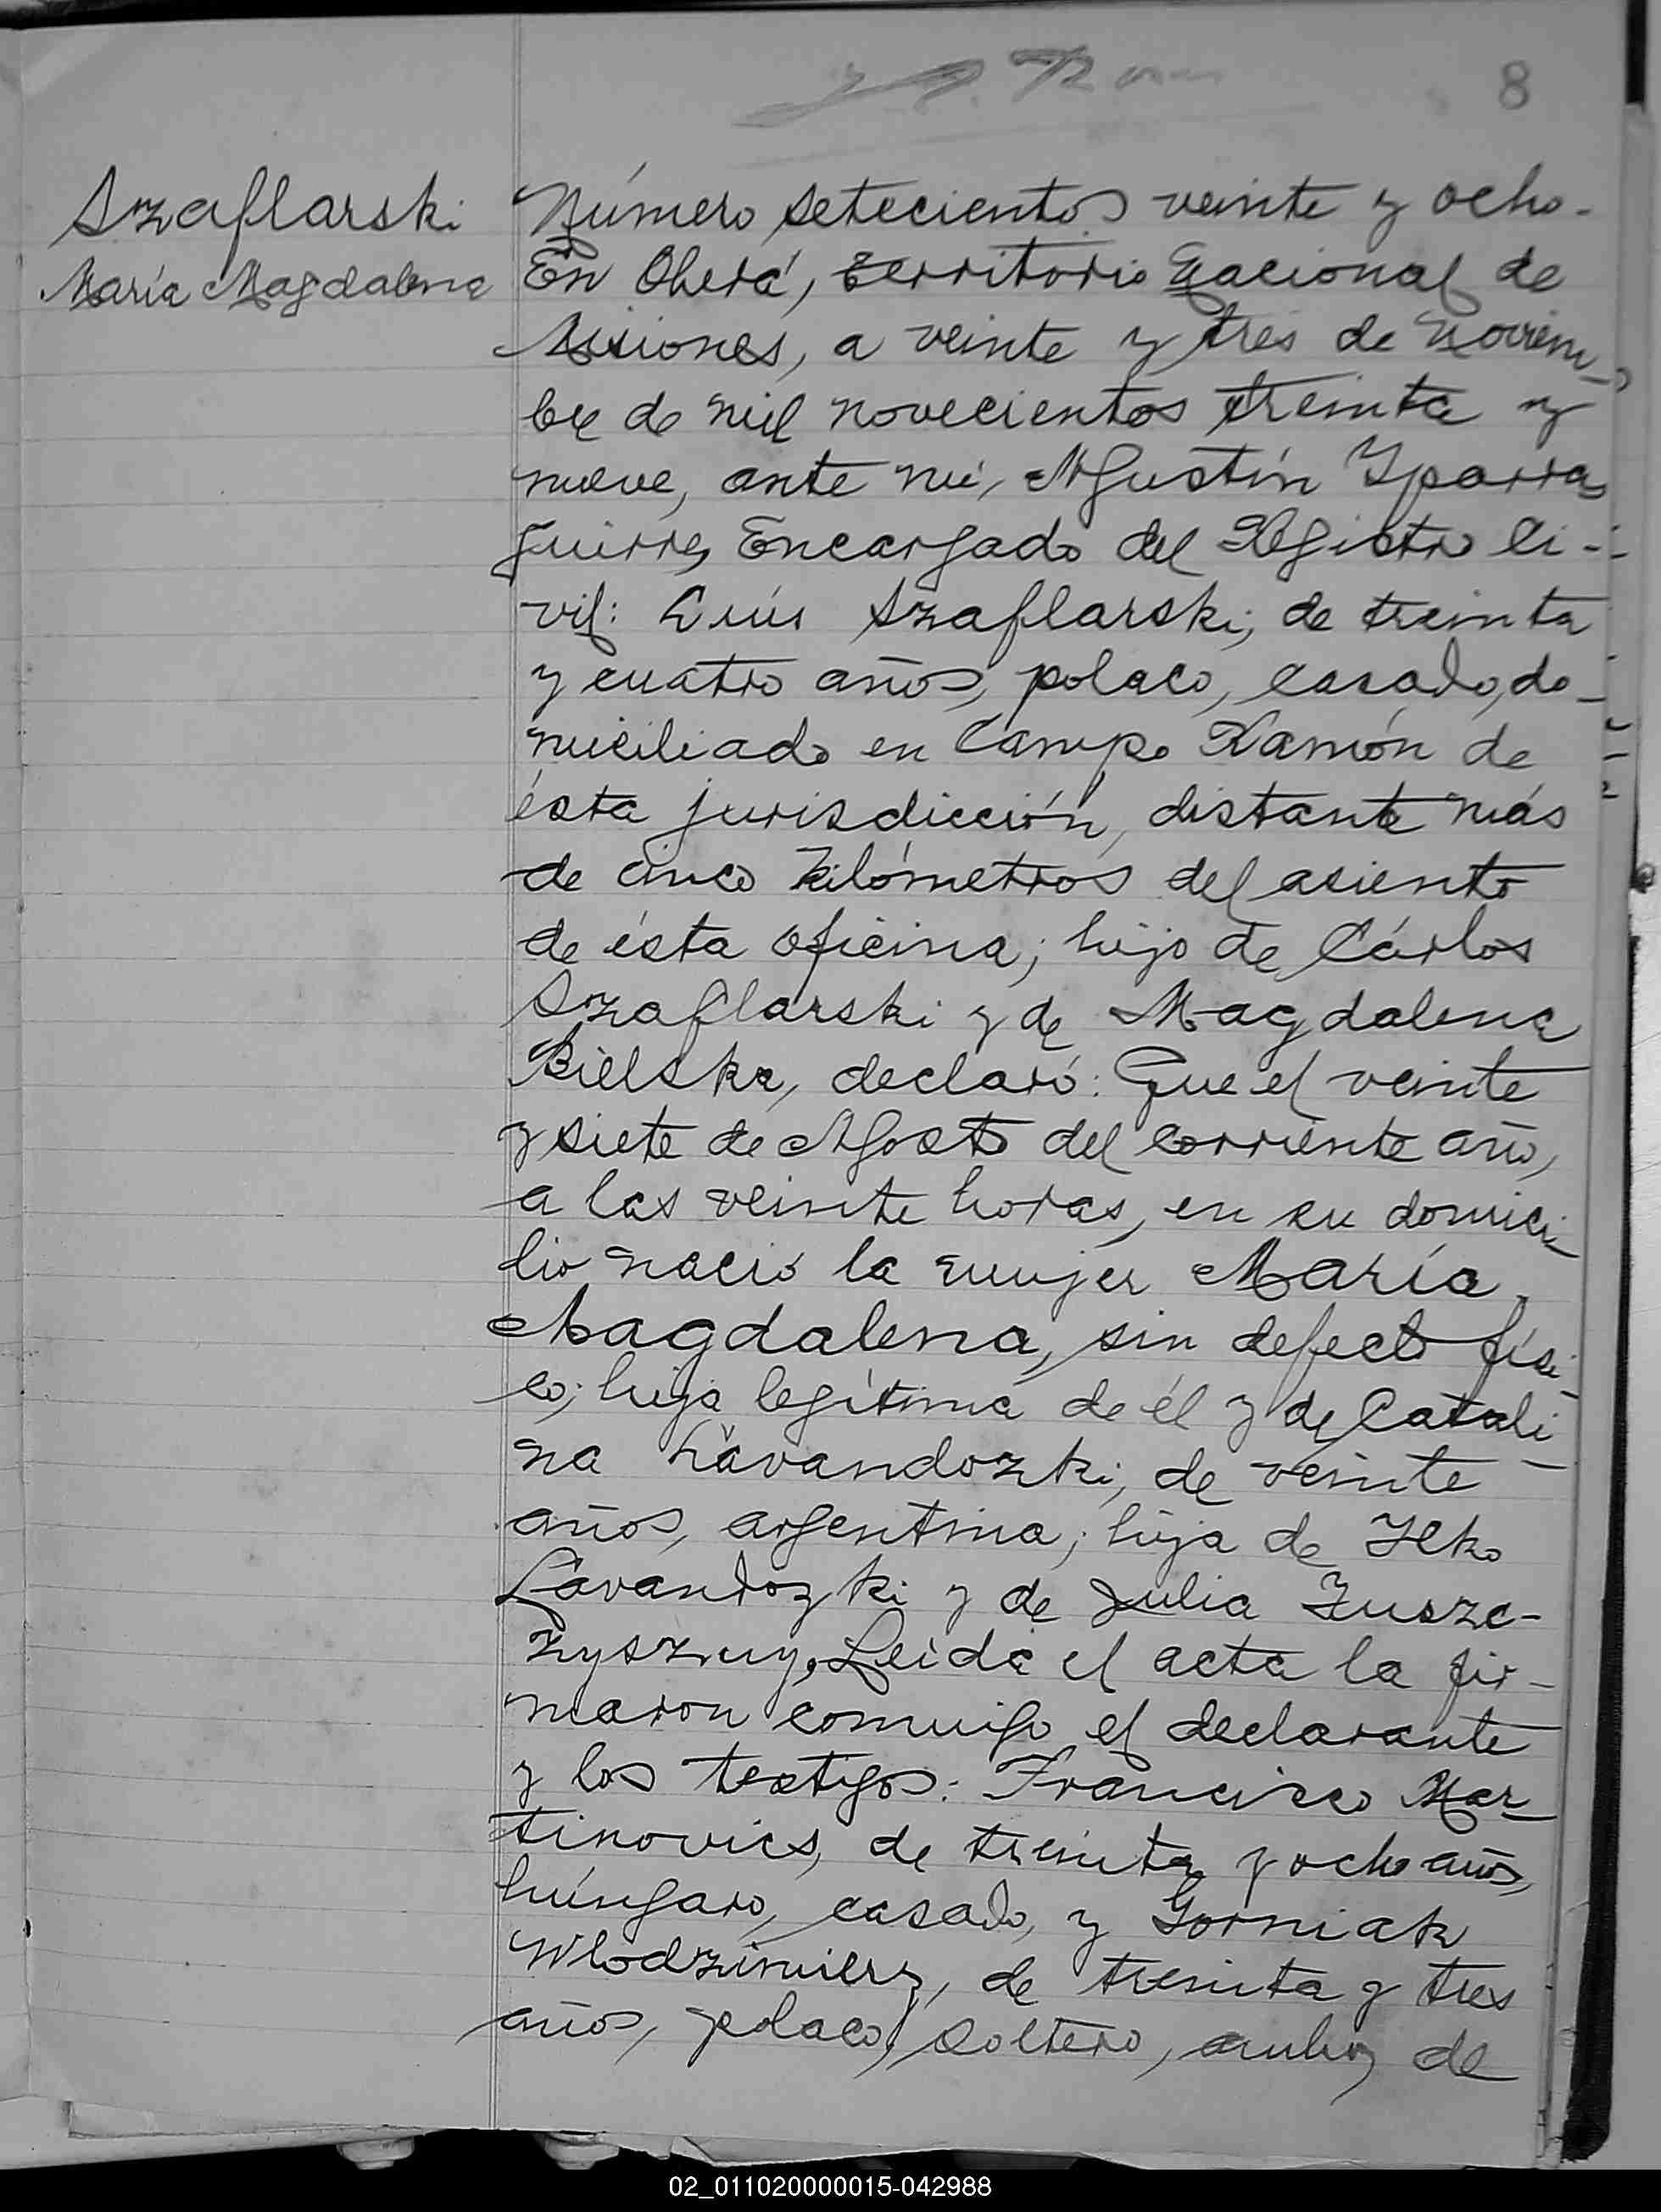 8
Szaflarski
María Magdalena
Número setecientos veinte y ocho.
En Oberá, territorio Nacional de
Misiones, a veinte y tres de Noviem-
bre de mil novecientos treinta y
nueve, ante mí, Agustín Yparra
guirre, Encargado del Registro Ci-
vil: Luis Szaflarski, de treinta
y cuatro años, polaco, casado, do-
miciliado en Campo Ramón de
ésta jurisdicción, distante más
de cinco kilómetros del asiento
de ésta oficina; hijo de Cárlos
Szaflarski y de Magdalena
Bielska, declaró: Que el veinte
y siete de Agosto del corriente año,
a las veinte horas, en su domici-
lio nació la mujer María
Magdalena, sin defecto físi-
co; hija legítima de él y de Catali-
na Lavandozki, de veinte
años, argentina; hija de Ilko
Lavandozki y de Julia Zuszc-
zyszuy. Leida el acta la fir-
maron conmigo el declarante
y los testigos: Francisco Mar-
tinovics, de treinta y ocho años,
húngaro, casado, y Gorniak
Wlodzimierz, de treinta y tres
años, polaco, soltero, ambos de
02_011020000015-042988